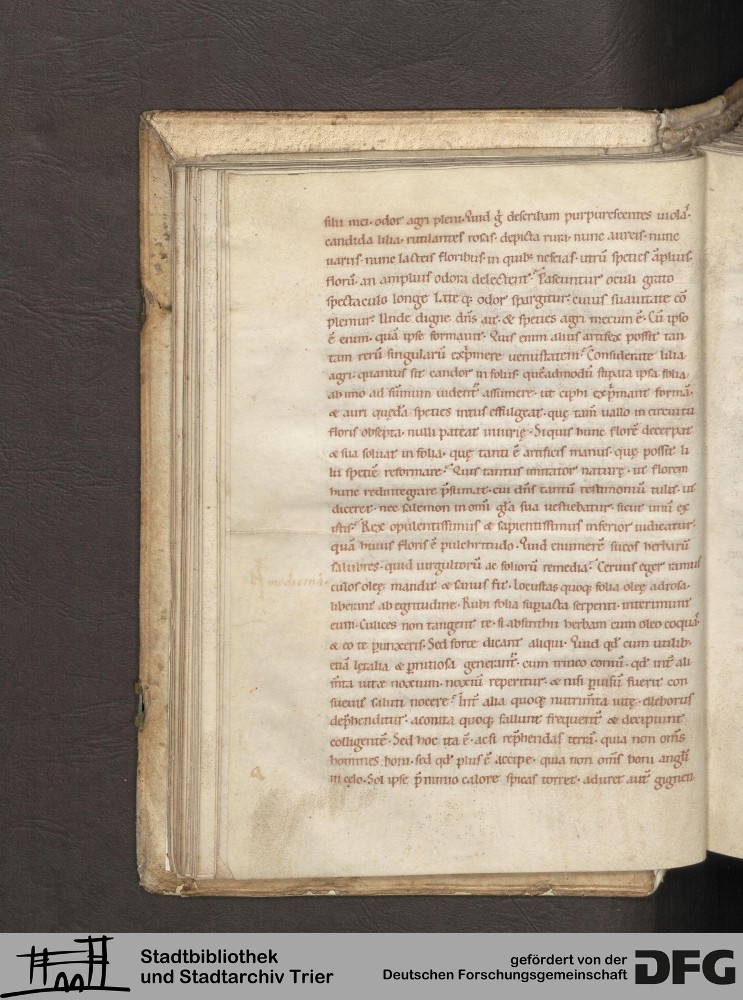 filii mei· odor agri pleni· Quid g̃ describam purpurescentes uiolas·
candida lilia· rutilantes rosas· depicta rura· nunc aureis· nunc
uariis· nunc lacteis floribus· in quib; nescias· utrũ species ãplius·
florũ· an amplius odora delectent? Pascuntur oculi grato
spectaculo longe Late q; odor spargitur· cuius suauitate cõ
plemur· Unde digne dñs ait· & species agri mecum ẽ· Cũ ipso
ẽ enim· quã ipse formauit· Quis enim alius artifex possit tan
tam rerũ singularũ exp̃mere uenustatem? Considerate lilia
agri· quantus sit candor in foliis· quẽadmodũ stipata ipsa folia·
ab imo ad sũmum uident̃ assurgere· ut ciphi exp̃mant formã·
& auri quędã species intus effulgeat· quę tam̃ uallo in circuitu
floris obsepta· nulli pateat iniurię· Si quis hunc florẽ decerpat
& sua soluat in folia· quę tanti ẽ artificis manus· quę possit li
lii speciẽ reformare? Quis tantus imitator naturę· ut florem
hunc redintegrare p̃sumat· cui dñs tantũ testimoniũ tulit· ut
diceret· nec salemon in omĩ gl̃a sua uestiebatur· sicut unũ ex
istis· Rex opulentissimus & sapientissimus inferior iudicatur·
quã huius floris ẽ pulchritudo· Quid enumerẽ sucos herbarũ
salubres· quid uirgultorũ ac foliorũ remedia? Ceruus eger ramus
culos oleę mandit & sanus fit· Locustas quoq; folia oleę adrosa·
liberant ab egritudine· Rubi folia sup̃iacta serpenti· interimunt
eum· Culices non tangent te· si absinthii herbam cum oleo coquã·
& eo te p̃unxeris· Sed forte dicant aliqui· Quid qd̃ cum utilib;
etiã lętalia & p̃nitiosa generant̃· cum tritico coniũ· qd̃ int̃ ali
m̃ta uitæ noxium· noxiũ reperitur· & nisi p̃uisũ fuerit con
sueuit saluti nocere? Int̃ alia quoq; nutrim̃ta uitę· elleborus
dep̃henditur· aconita quoq; fallunt frequent̃ & decipiunt
colligentẽ· Sed hoc ita ẽ· ac si rep̃hendas terrã· quia non om̃s
homines boni· sed qd̃ plus ẽ accipe· quia non om̃s boni angli
in cęlo· Sol ipse p̃ nimio calore spicas torret· aduret aut̃ gignen
Stadtbibliothek
und Stadtarchiv Trier
gefördert von der
Deutschen Forschungsgemeinschaft
DFG